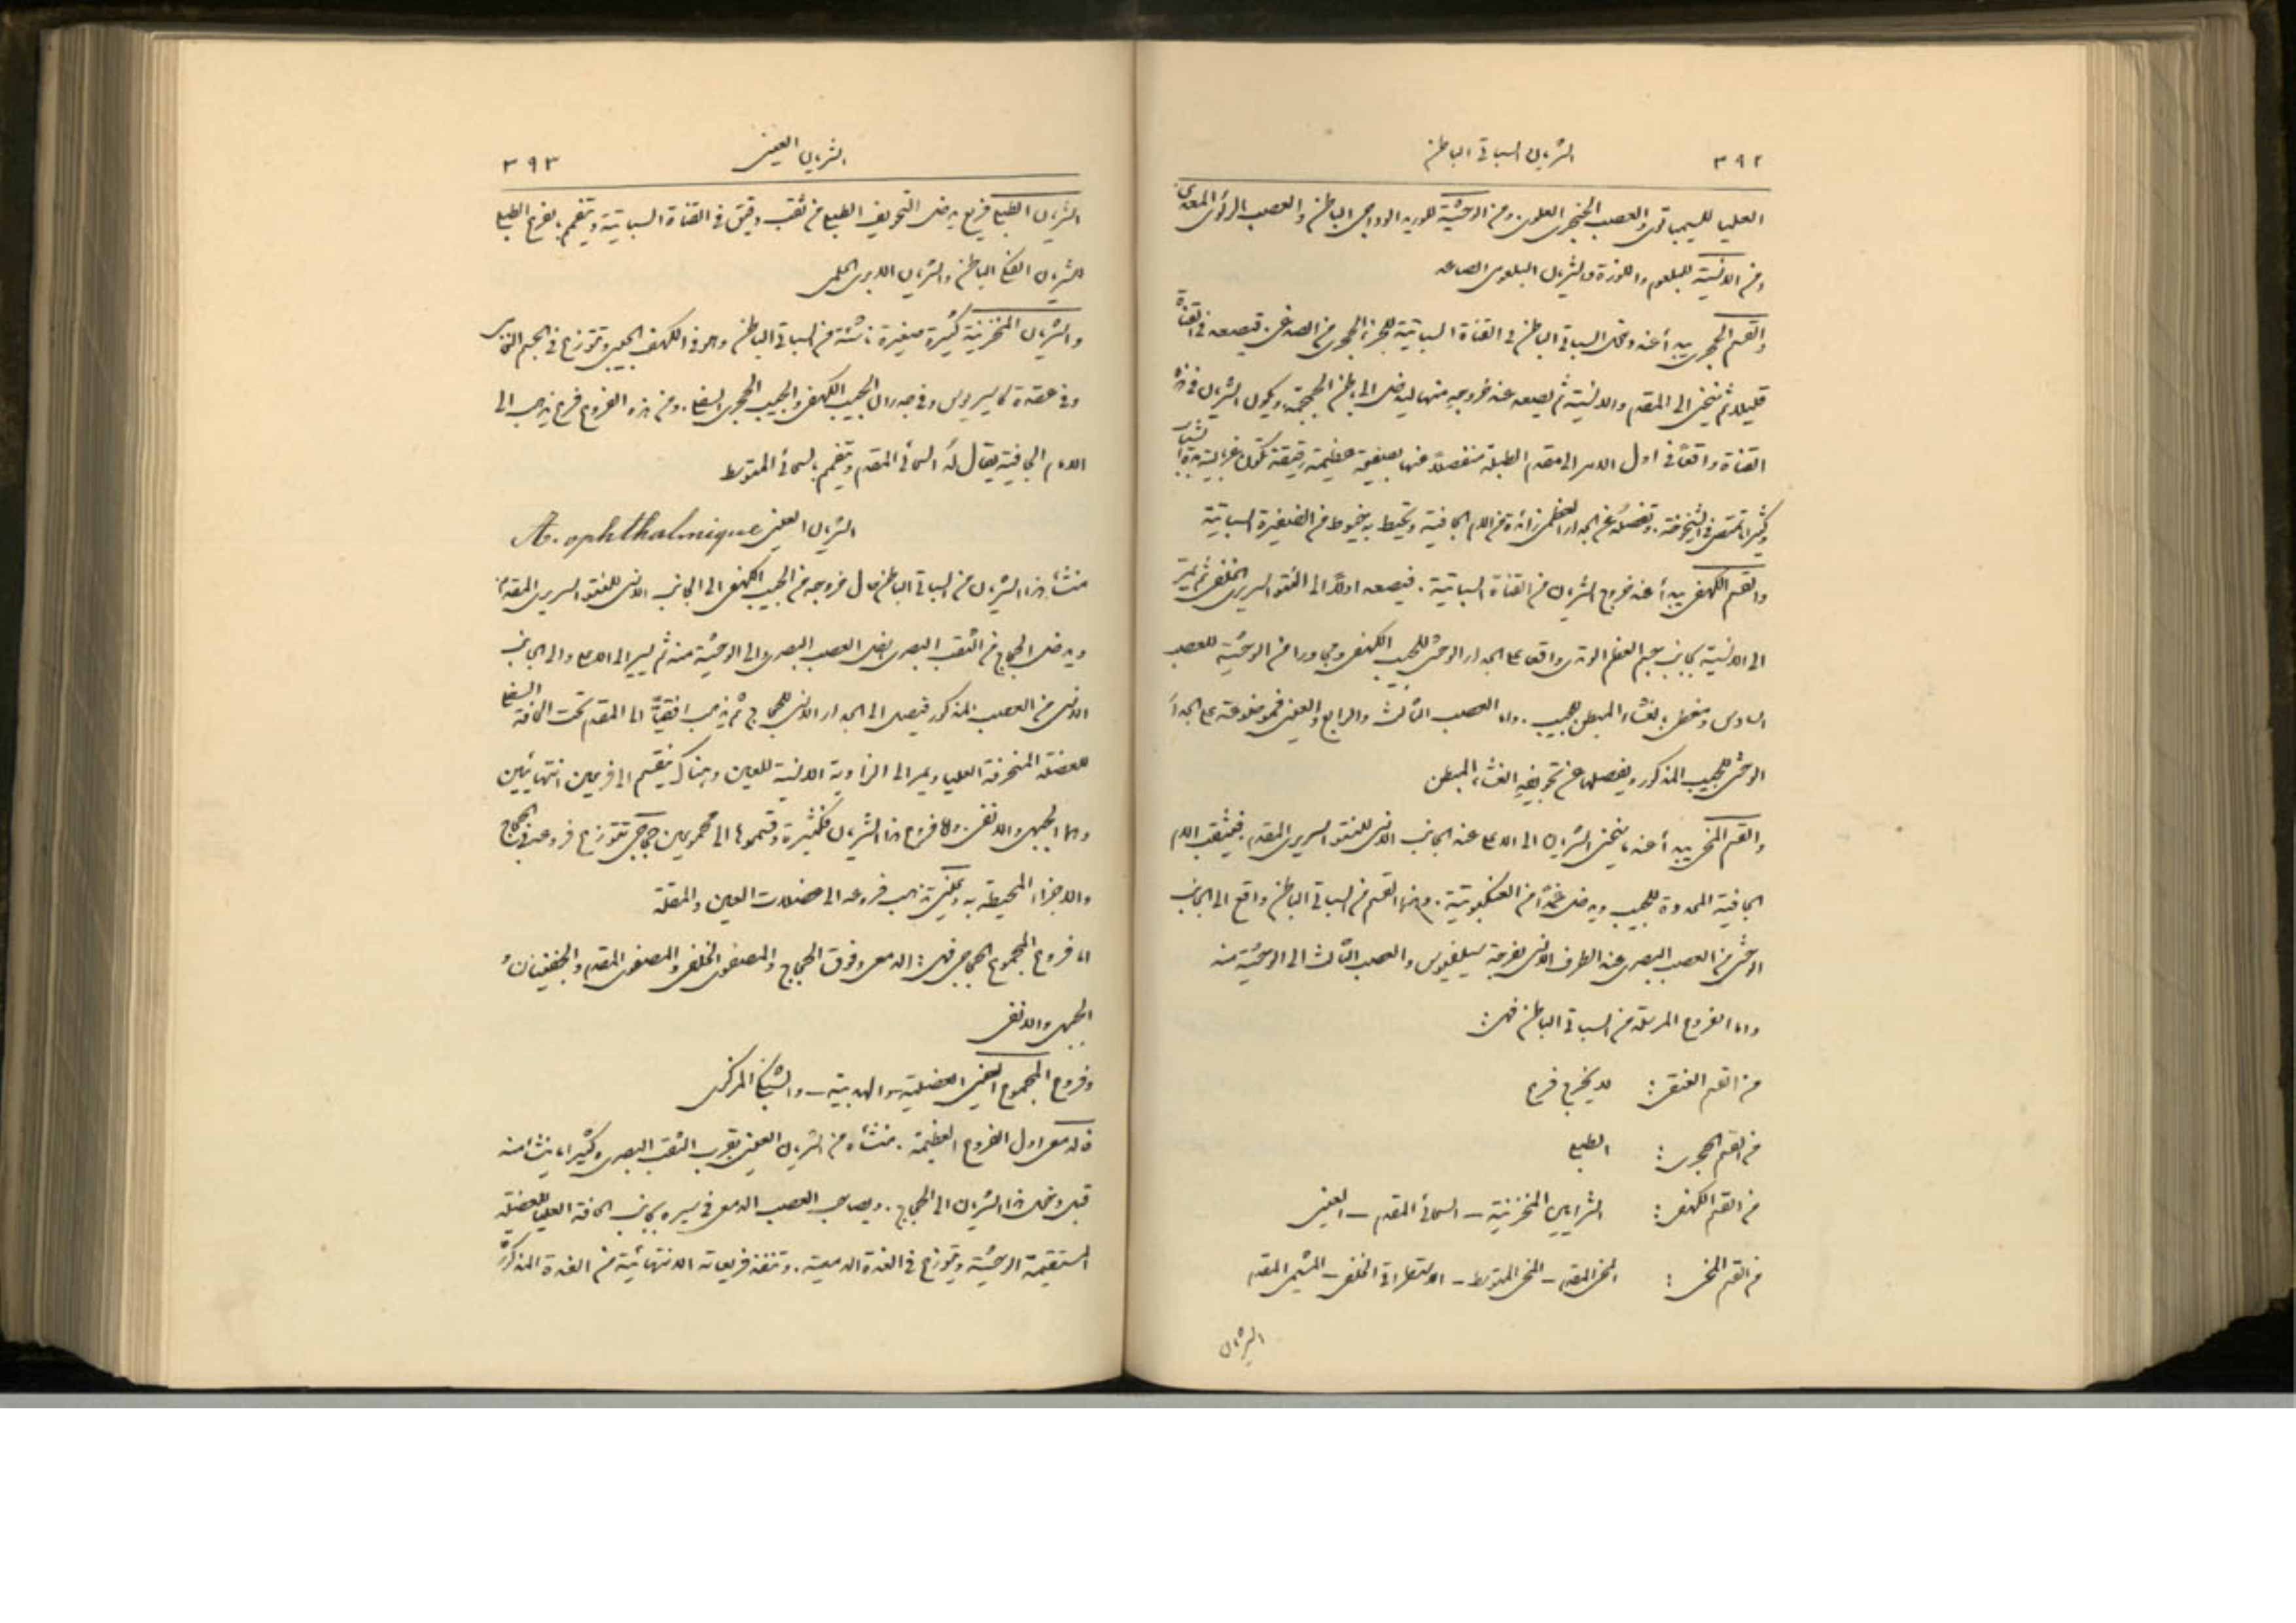 ٣٩٢ الشريان السباتي الباطن
العليا للسيمباتوي والعصب الحنجري العلوي. ومن الوحشية للوريد الوداجي الباطن والعصب الرئوي المعدي
ومن الانسية للبلعوم واللوزة والشريان البلعومي الصاعد
والقسم الحجري يبدأ عند دخول السباتي الباطن في القناة السباتية للجزء الحجري من الصدغي. فيصعد في القناة
قليلا ثم ينحني الى المقدم والانسية ثم يصعد عند خروجه منها ليدخل الى باطن الجمجمة. ويكون الشريان في هذه
القناة واقعًا في اول الامر الى مقدم الطبلة منفصلاً عنها بصفيحة عظيمة رقيقة تكون غربالية مدة الشباب
وكثيرا ما تمتص في الشيخوخة. وتفصله عن الجدار العظمي زائدة من الام الجافية وتحيط به خيوط من الضفيرة السباتية
والقسم الكهفي يبدأ عند خروج الشريان من القناة السباتية. فيصعد اولاً الى النتو السريري الخلفي ثم يمر
الى الانسية بجانب جسم العظم الوتدي واقعا على الجدار الوحشي للجيب الكهفي ومجاورا من الوحشية للعصب
السادس ومغطى بالغشاء المبطن للجيب. واما العصب الثالث والرابع والعيني فموضوعة على الجدار
الوحشي للجيب المذكور ويفصلها عن تجويفه الغشاء المبطن
والقسم المخي يبدأ عندما ينحني الشريان الى الاعلى عند الجانب الانسي للنتو السريري المقدم. فيثقب الام
الجافية المحدودة للجيب ويدخل غمدًا من العنكبوتية. وهذا القسم من السباتي الباطن واقع الى الجانب
الوحشي من العصب البصري عند الطرف الانسي لفرجة سيلفيوس والعصب الثالث الى الوحشية منه
واما الفروع المرسلة من السباتي الباطن فهي:
من القسم العنقي: لا يخرج فرع
من القسم الحجري: الطبلي
من القسم الكهفي: الشرايين المخزنية – السحائي المقدم – العيني
من القسم المخي: المخي المقدم – المخي المتوسط – الاستطراقي الخلفي – المشيمي المقدم
الشريان
الشريان العيني ٣٩٣
الشريان الطبلي فريع يدخل التجويف الطبلي من ثقب دقيق في القناة السباتية ويتفمم بفرع الطبلي
للشريان الفكي الباطن والشريان الابري الحلمي
والشرايين المخزنية كثيرة صغيرة ناشئة من السباتي الباطن وهو في الكهف الجيبي وتتوزع في الجسم النخامي
وفي عقدة كاسيريوس وفي جدران الجيب الكهفي والجيب الحجري السفلي. ومن هذه الفروع فرع يذهب الى
الام الجافية يقال له السحائي المقدم ويتفمم بالسحائي المتوسط
الشريان العيني A. ophthalmique
منشأ هذا الشريان من السباتي الباطن حال خروجه من الجيب الكهفي الى الجانب الانسي للنتو السريري المقدم
ويدخل الحجاج من الثقب البصري اسفل العصب البصري والى الوحشية منه ثم يسير الى الاعلى والى الجانب
الانسي من العصب المذكور فيصل الى الجدار الانسي للحجاج ثم يذهب افقيًا الى المقدم تحت الحافة السفلى
للعضلة المنحرفة العليا ويمر الى الزاوية الانسية للعين وهناك ينقسم الى فرعين انتهائيين
وهما الجبهي والانفي. واما فروع هذا الشريان فكثيرة وقسموها الى مجموعين حجاجي تتوزع فروعه في الحجاج
والاجزاء المحيطة به وعيني تذهب فروعه الى عضلات العين والمقلة
اما فروع المجموع الحجاجي فهي: الدمعي وفوق الحجاج والمصفوي الخلفي والمصفوي المقدم والجفنيان و
الجبهي والانفي
وفروع المجموع العيني العضلية – والهدبية – والشبكي المركزي
فالدمعي اول الفروع العظيمة. منشأه من الشريان العيني بقرب الثقب البصري وكثيرا ما ينشأ منه
قبل دخول هذا الشريان الى الحجاج. ويصاحب العصب الدمعي في سيره بجانب الحافة العليا للعضلة
المستقيمة الوحشية ويتوزع في الغدة الدمعية. وتنفذ فريعاته الانتهائية من الغدة المذكورة